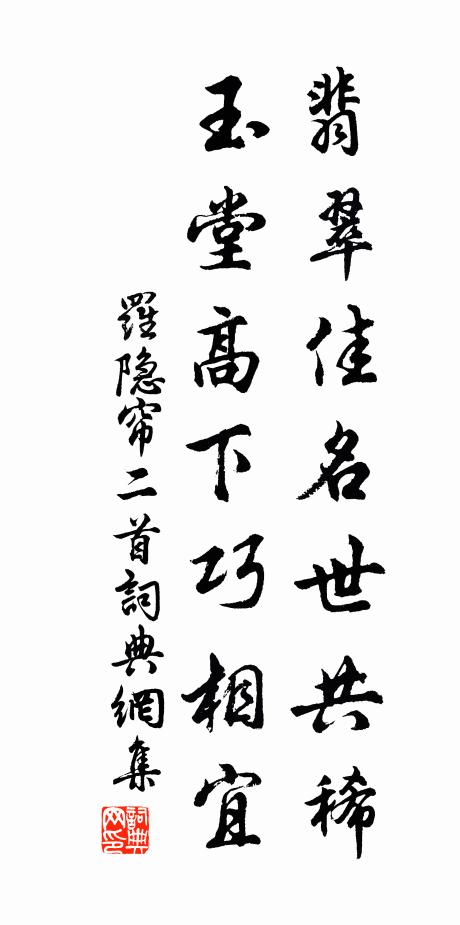 翡翠佳名世共稀
玉堂高下巧相宜
羅隐帘二首詞典網集
詞典
网印